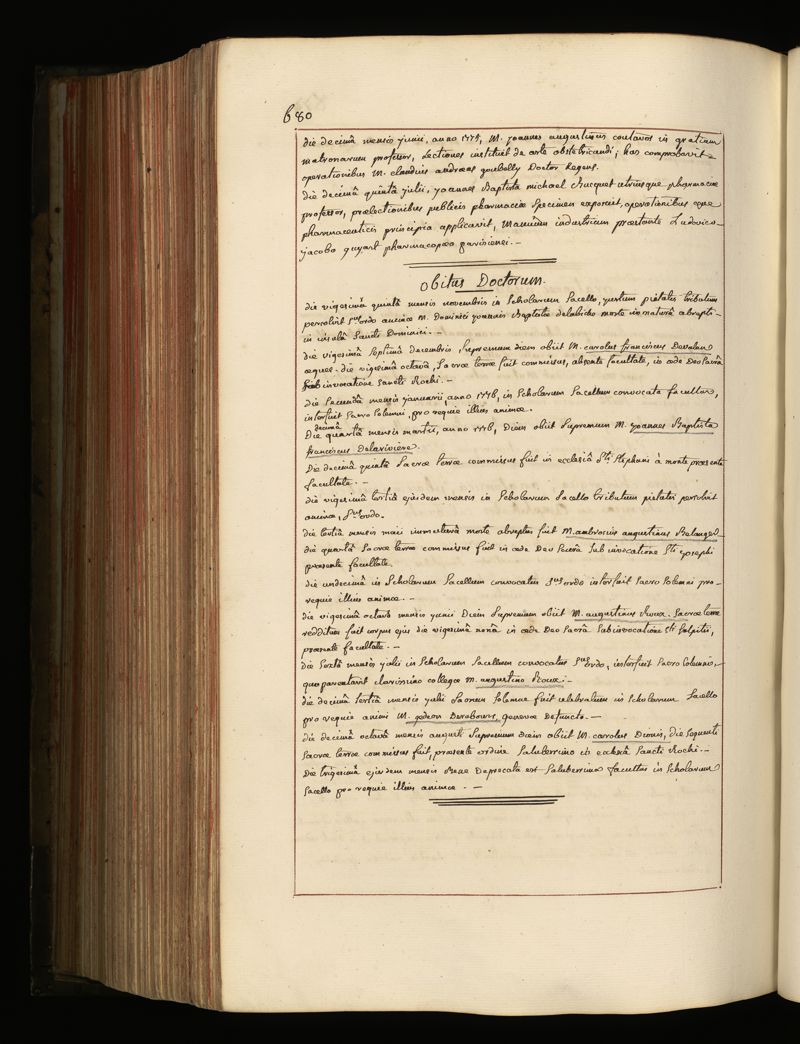 680
die decimâ mensis junii, anno 1775, M. joannes augustinus coutavoz in gratiam
matronarum professor, Lectiones instituit de arte obstetricandi; has comprobavit
operationibus M. claudius andraeas goubelly Doctor Regens.
die decimâ quintâ julii, joannes Baptista michael utriusque pharmaciae
professor, praelectionibus publicis pharmaciae Specimen exposuit, operationibus
pharmaceuticis principia applicavit, Manuum industriam praestante Ludovico
jacobo guyart pharmacopaeo parisiensi. -
obitus Doctorum.
die vigesimâ quintâ mensis novembris in Scholarum Sacello, justum pietatis tributum
persolvit Sus ordo animae M. Dominici joannis Baptistae morte immaturâ abrepti
in insulâ Sancti Dominici. -
die vigesimâ Septimâ decembris, Supremum diem obiit M. carolus franciscus
aeques. die vigesimâ octavâ, Sacrae terrae fuit commissus, absente facultate, in aede Deo Sacrâ
Sub invocatione Sancti Rochi. -
die Secundâ mensis januarii, anno 1776, in Scholarum Sacellum convocata facultas,
interfuit Sacro Solemni, pro requie illius animae.
Die decimâ quartâ mensis martii, anno 1776, Diem obiit Supremum M. joannes Baptista
franciscus Delariviere.
Die decimâ quintâ Sacrae terrae commissus fuit in ecclesiâ Sti Stephani à monte praesente
facultate. -
die vigesimâ tertiâ ejusdem mensis in Scholarum Sacello tributum pietatis persolvit
animae, Sus ordo.
die tertiâ mensis maii immaturâ morte abreptus fuit M. ambrosius augustinus Belanger
die quartâ Sacrae terrae commissus fuit in aede Deo Sacrâ Sub invocatione Sti josephi
praesente facultate.
die undecimâ in Scholarum Sacellum convocatus Sus ordo interfuit Sacro Solemni pro
requie illius animae. -
die vigesimâ octavâ mensis junii Diem Supremum obiit M. augustinus Roux. Sacrae terrae
redditum fuit corpus ejus die vigesimâ nonâ in aede Deo Sacrâ Sub invocatione Sti Sulpitii,
praesente facultate. -
die Sextâ mensis julii in Scholarum Sacellum convocatus Sus ordo, interfuit Sacro Solemnio,
quo parentavit clarissimo collegae M. augustino Roux. -
die decimâ tertiâ mensis julii Sacrum Solemne fuit celebratum in Scholarum Sacello
pro requie animi M. gedeon genevae Defuncto. -
die decimâ octavâ mensis augusti Supremum Diem obiit M. carolus Dionis, die Sequenti
Sacrae terrae commissus fuit, praesente ordine Saluberrimo in ecclesiâ Sancti Rochi. -
Die trigesimâ ejusdem mensis Deprecata est Saluberrima facultas in Scholarum
Sacello pro requie illius animae. -